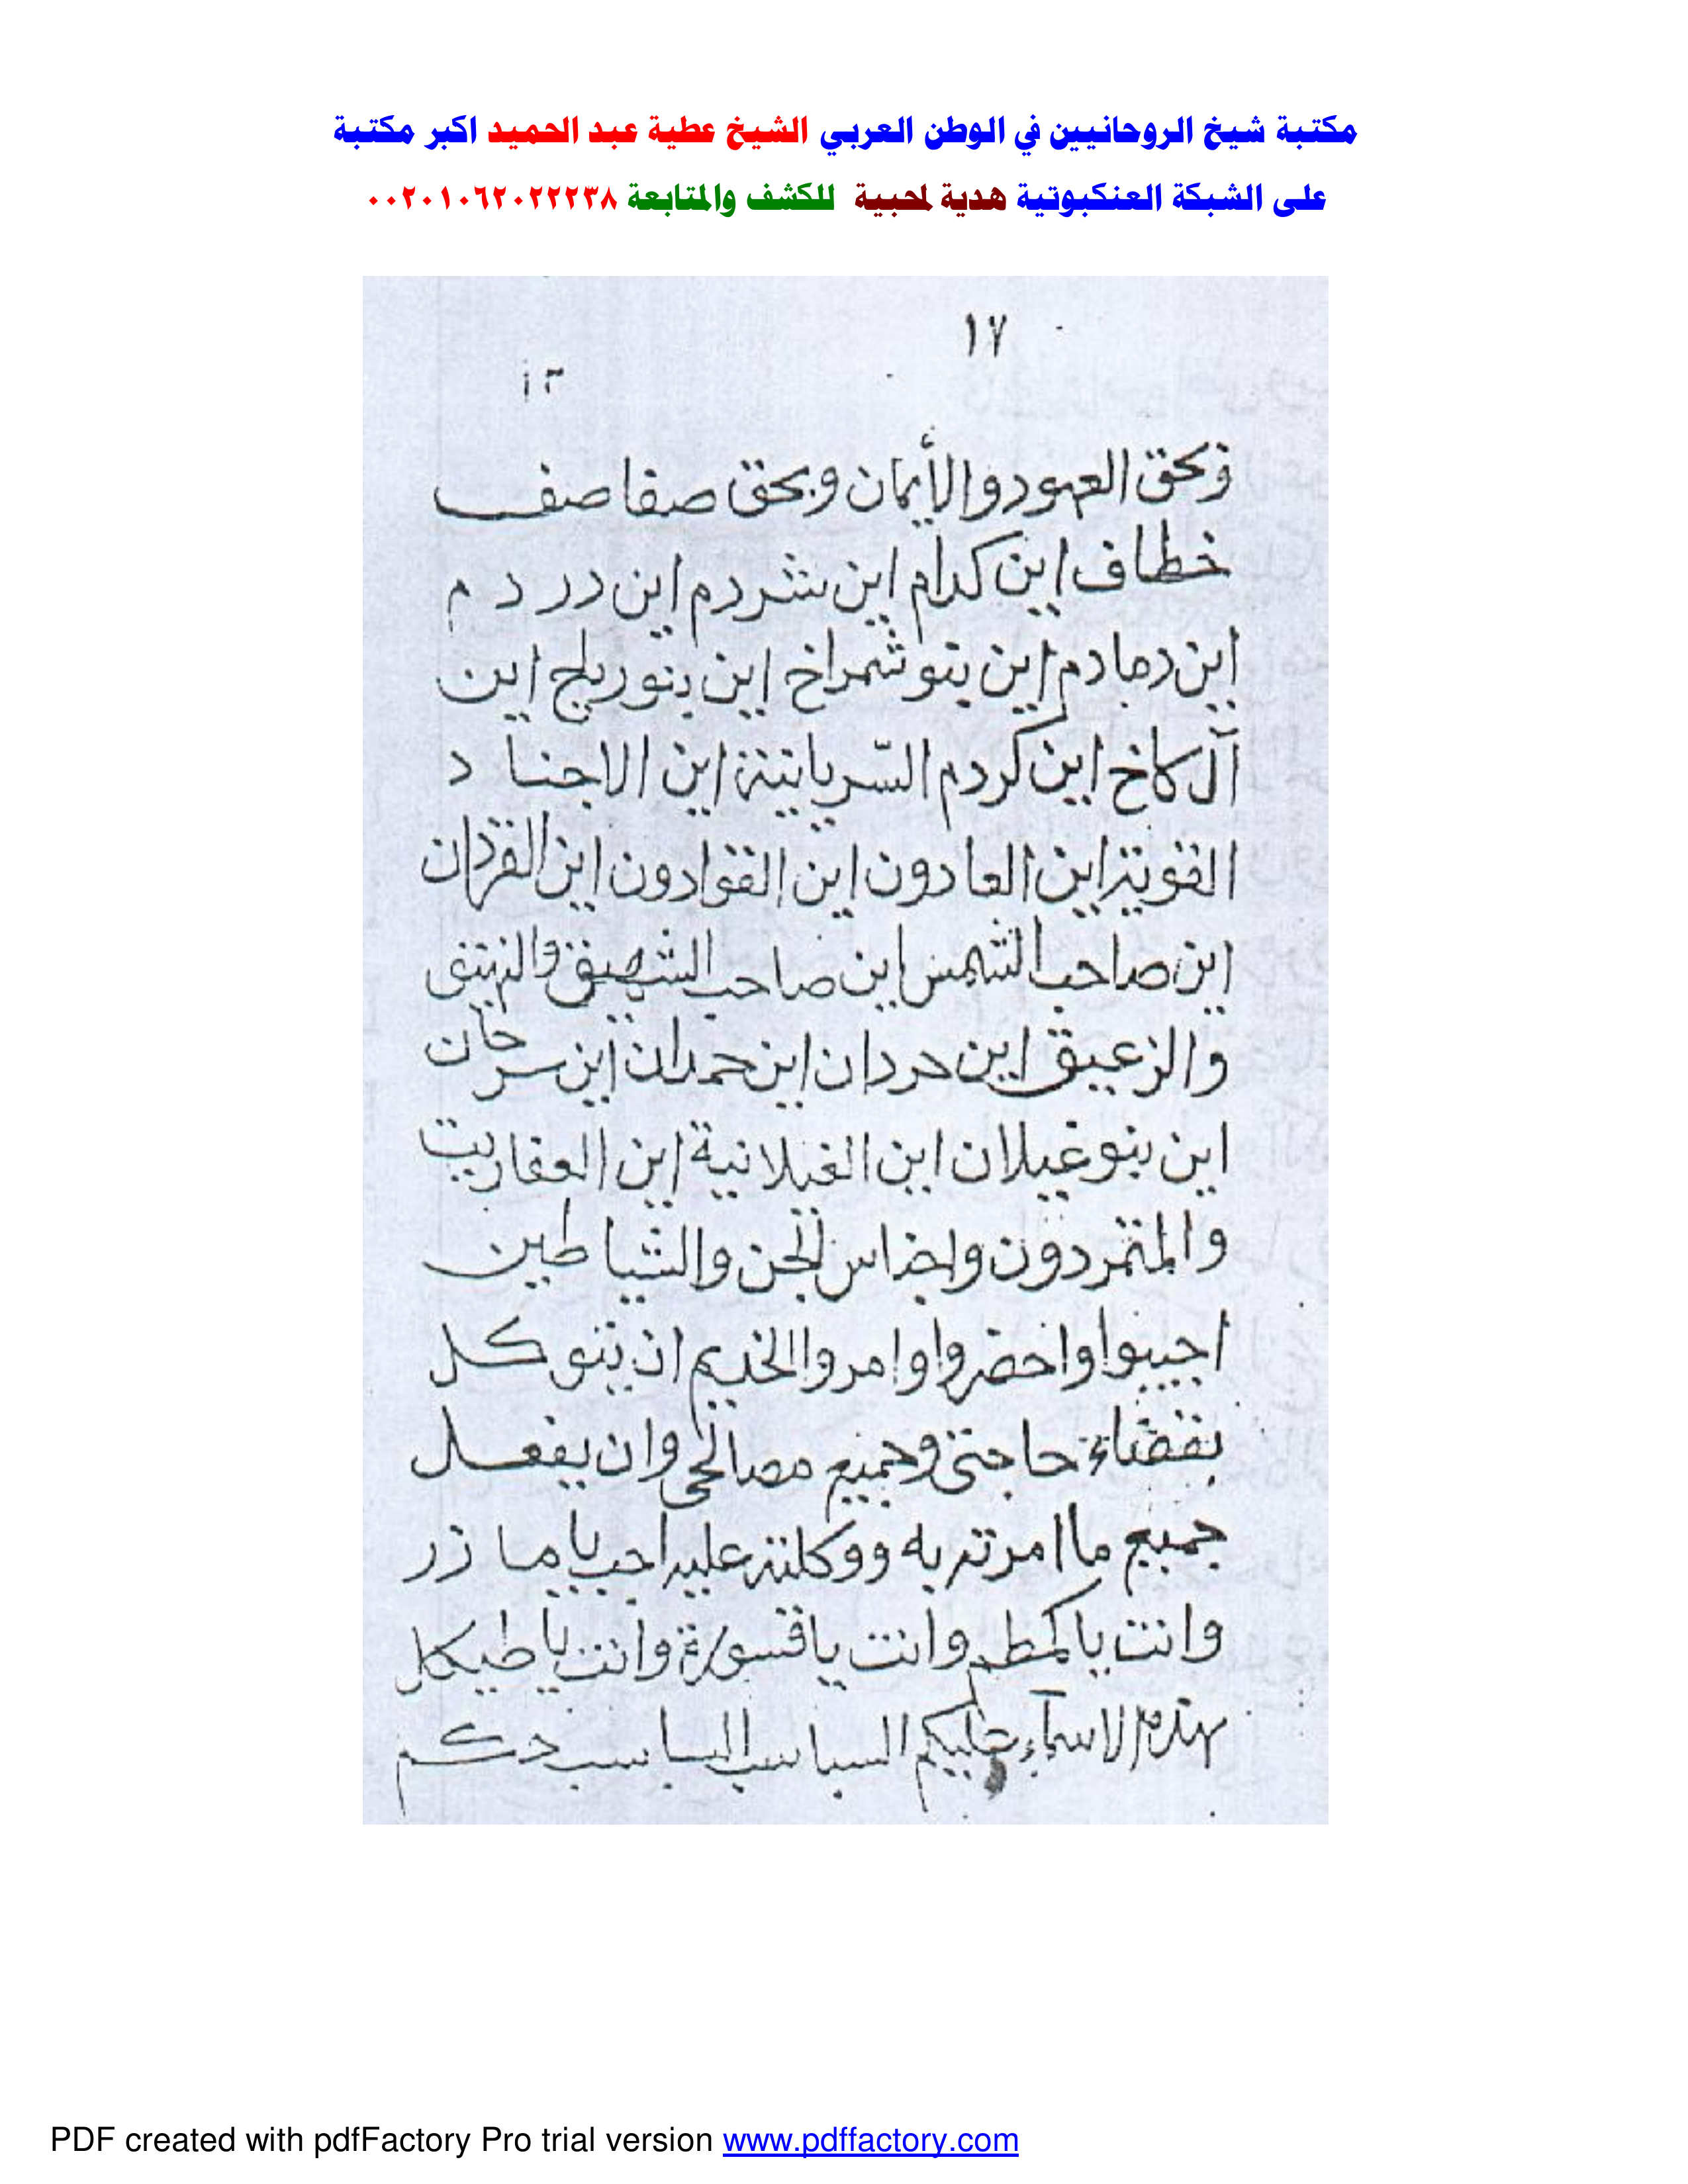 مكتبة شيخ الروحانيين في الوطن العربي الشيخ عطية عبد الحميد اكبر مكتبة
على الشبكة العنكبوتية هدية لمحبية للكشف والمتابعة ٠٠٢٠١٠٦٢٠٢٢٢٣٨
١٧
وبحق العهود والأيمان وبحق صفاصف
خطاف اين كدام اين شردم اين در د م
اين دمادم اين بنو شمراخ اين بنو ريلح اين
آل كاخ اين كردم السريانية اين الاجناد
القوية اين العادون اين القوادون اين
اين صاحب الشمس اين صاحب الشهيق والنهيق
والزعيق اين حردان اين حمدان اين سرحان
اين بنو غيلان اين الغيلانية اين العفاريت
والمتمردون واجناس الجن والشياطين
اجيبوا واحضروا وامروا الخديم ان يتوكل
بقضاء حاجتى وجميع مصالحى وان يفعل
جميع ما امرته به ووكلته عليه اجب يا مازر
وانت يا كمطم وانت يا قسورة وانت يا طيكل
بهذه الاسماء عليكم السباسب السباسب دكم
PDF created with pdfFactory Pro trial version www.pdffactory.com